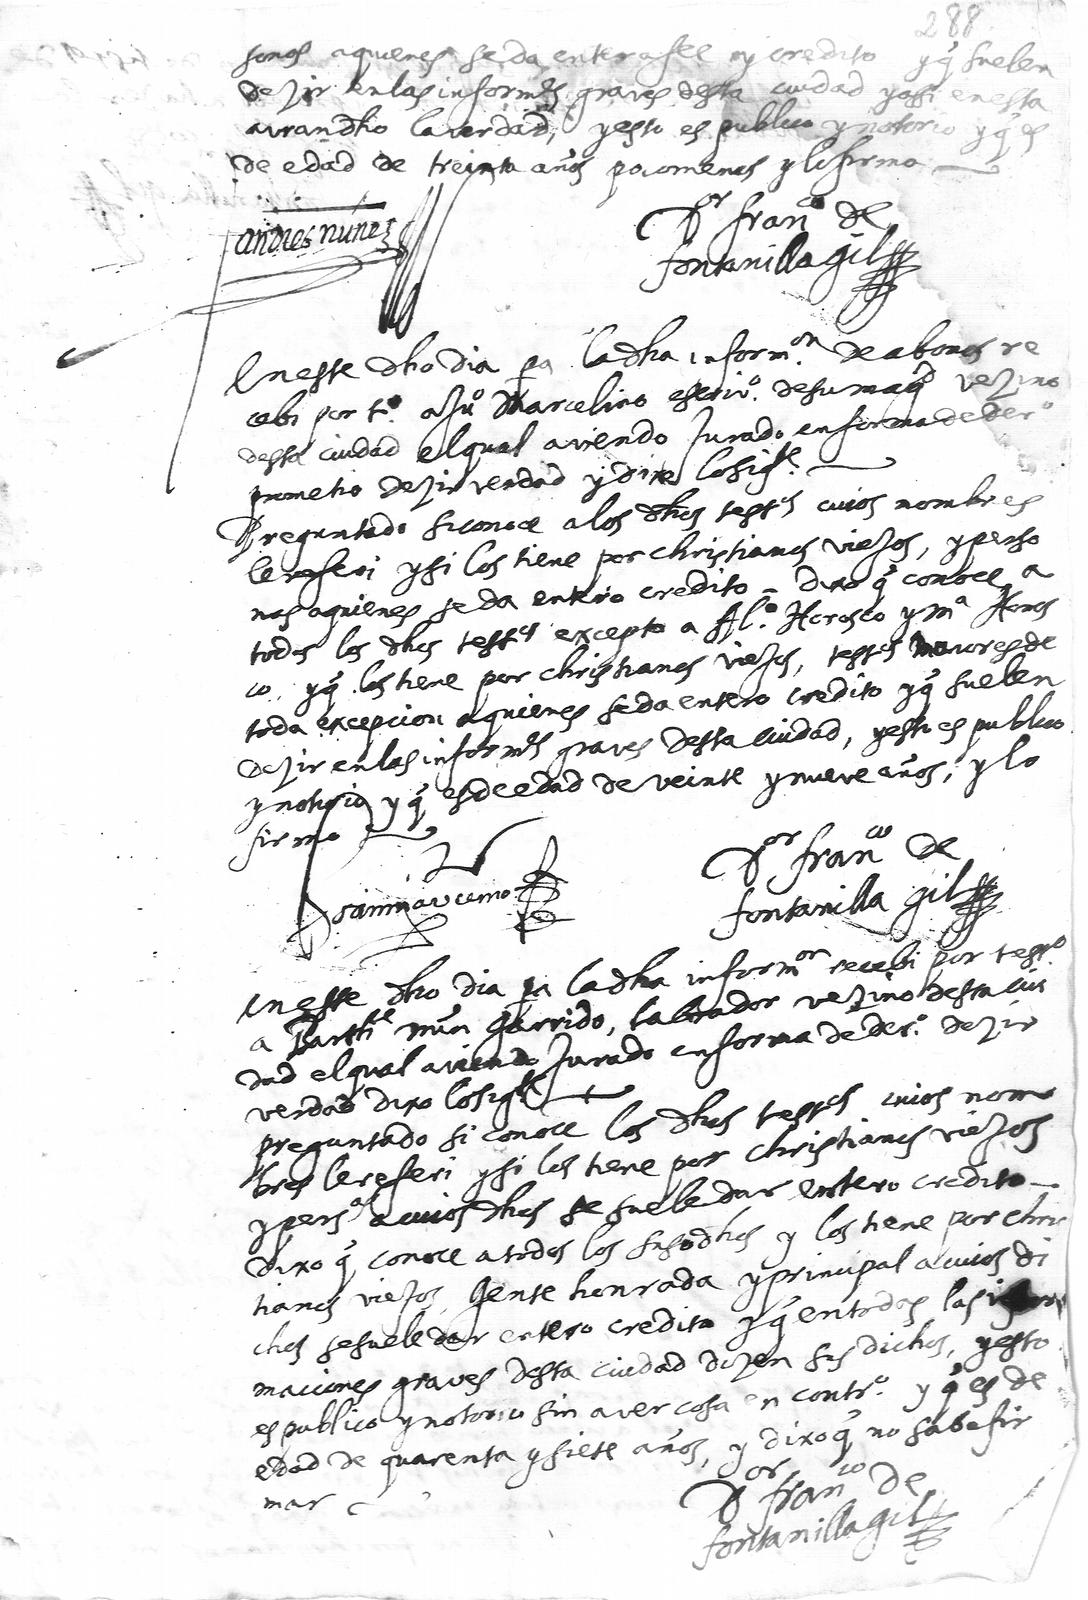 288
sonas a quienes se da entera fee y credito y q̃ suelen
dezir en las inform.es graves desta ciudad y assi en esta
avran dho la verdad, y esto es publico y notorio y q̃ es
de edad de treinta años poco menos y lo firmo
andres nuñez
Dor fran.co de
fontanilla gil
En este dho dia pa la dha inform.on de abonos re
cebi por t.o a Ju.o Marcelino escriv.o de su mag.d vezino
desta ciudad el qual aviendo Jurado en forma de der.o
prometio dezir verdad y dixo lo sig.te
Preguntado si conoce a los dhos test.os cuios nombres
le referi y si los tiene por christianos viejos, y perso
nas a quienes se da entero credito = dixo q̃ conoce a
todos los dhos test.os excepto a Al.o Horosco y M.a Horos
co, y q̃ los tiene por christianos viejos, test.os maiores de
toda excepcion a quienes se da entero credito y q̃ suelen
dezir en las inform.es graves desta ciudad, y esto es publico
y notorio y q̃ es de edad de veinte y nueve años, y lo
firmo
Dor fran.co de
fontanilla gil
En este dho dia pa la dha inform.on recebi por test.o
a Barth.e mun Garrido, labrador vezino desta ciu
dad el qual aviendo Jurado en forma de der.o dezir
verdad dixo lo sig.te
preguntado si conoce los dhos test.os cuios nom
bres le referi y si los tiene por christianos viejos
y pers.s a cuios dhos se suele dar entero credito
dixo q̃ conoce a todos los susodhos y los tiene por chris
tianos viejos, Gente honrada y principal a cuios di
chos se suele dar entero credito y q̃ en todas las infor
maciones graves desta ciudad dizen sus dichos, y esto
es publico y notorio sin aver cosa en contr.o y q̃ es de
edad de quarenta y siete años, y dixo q̃ no sabe fir
mar
Dor fran.co de
fontanilla gil